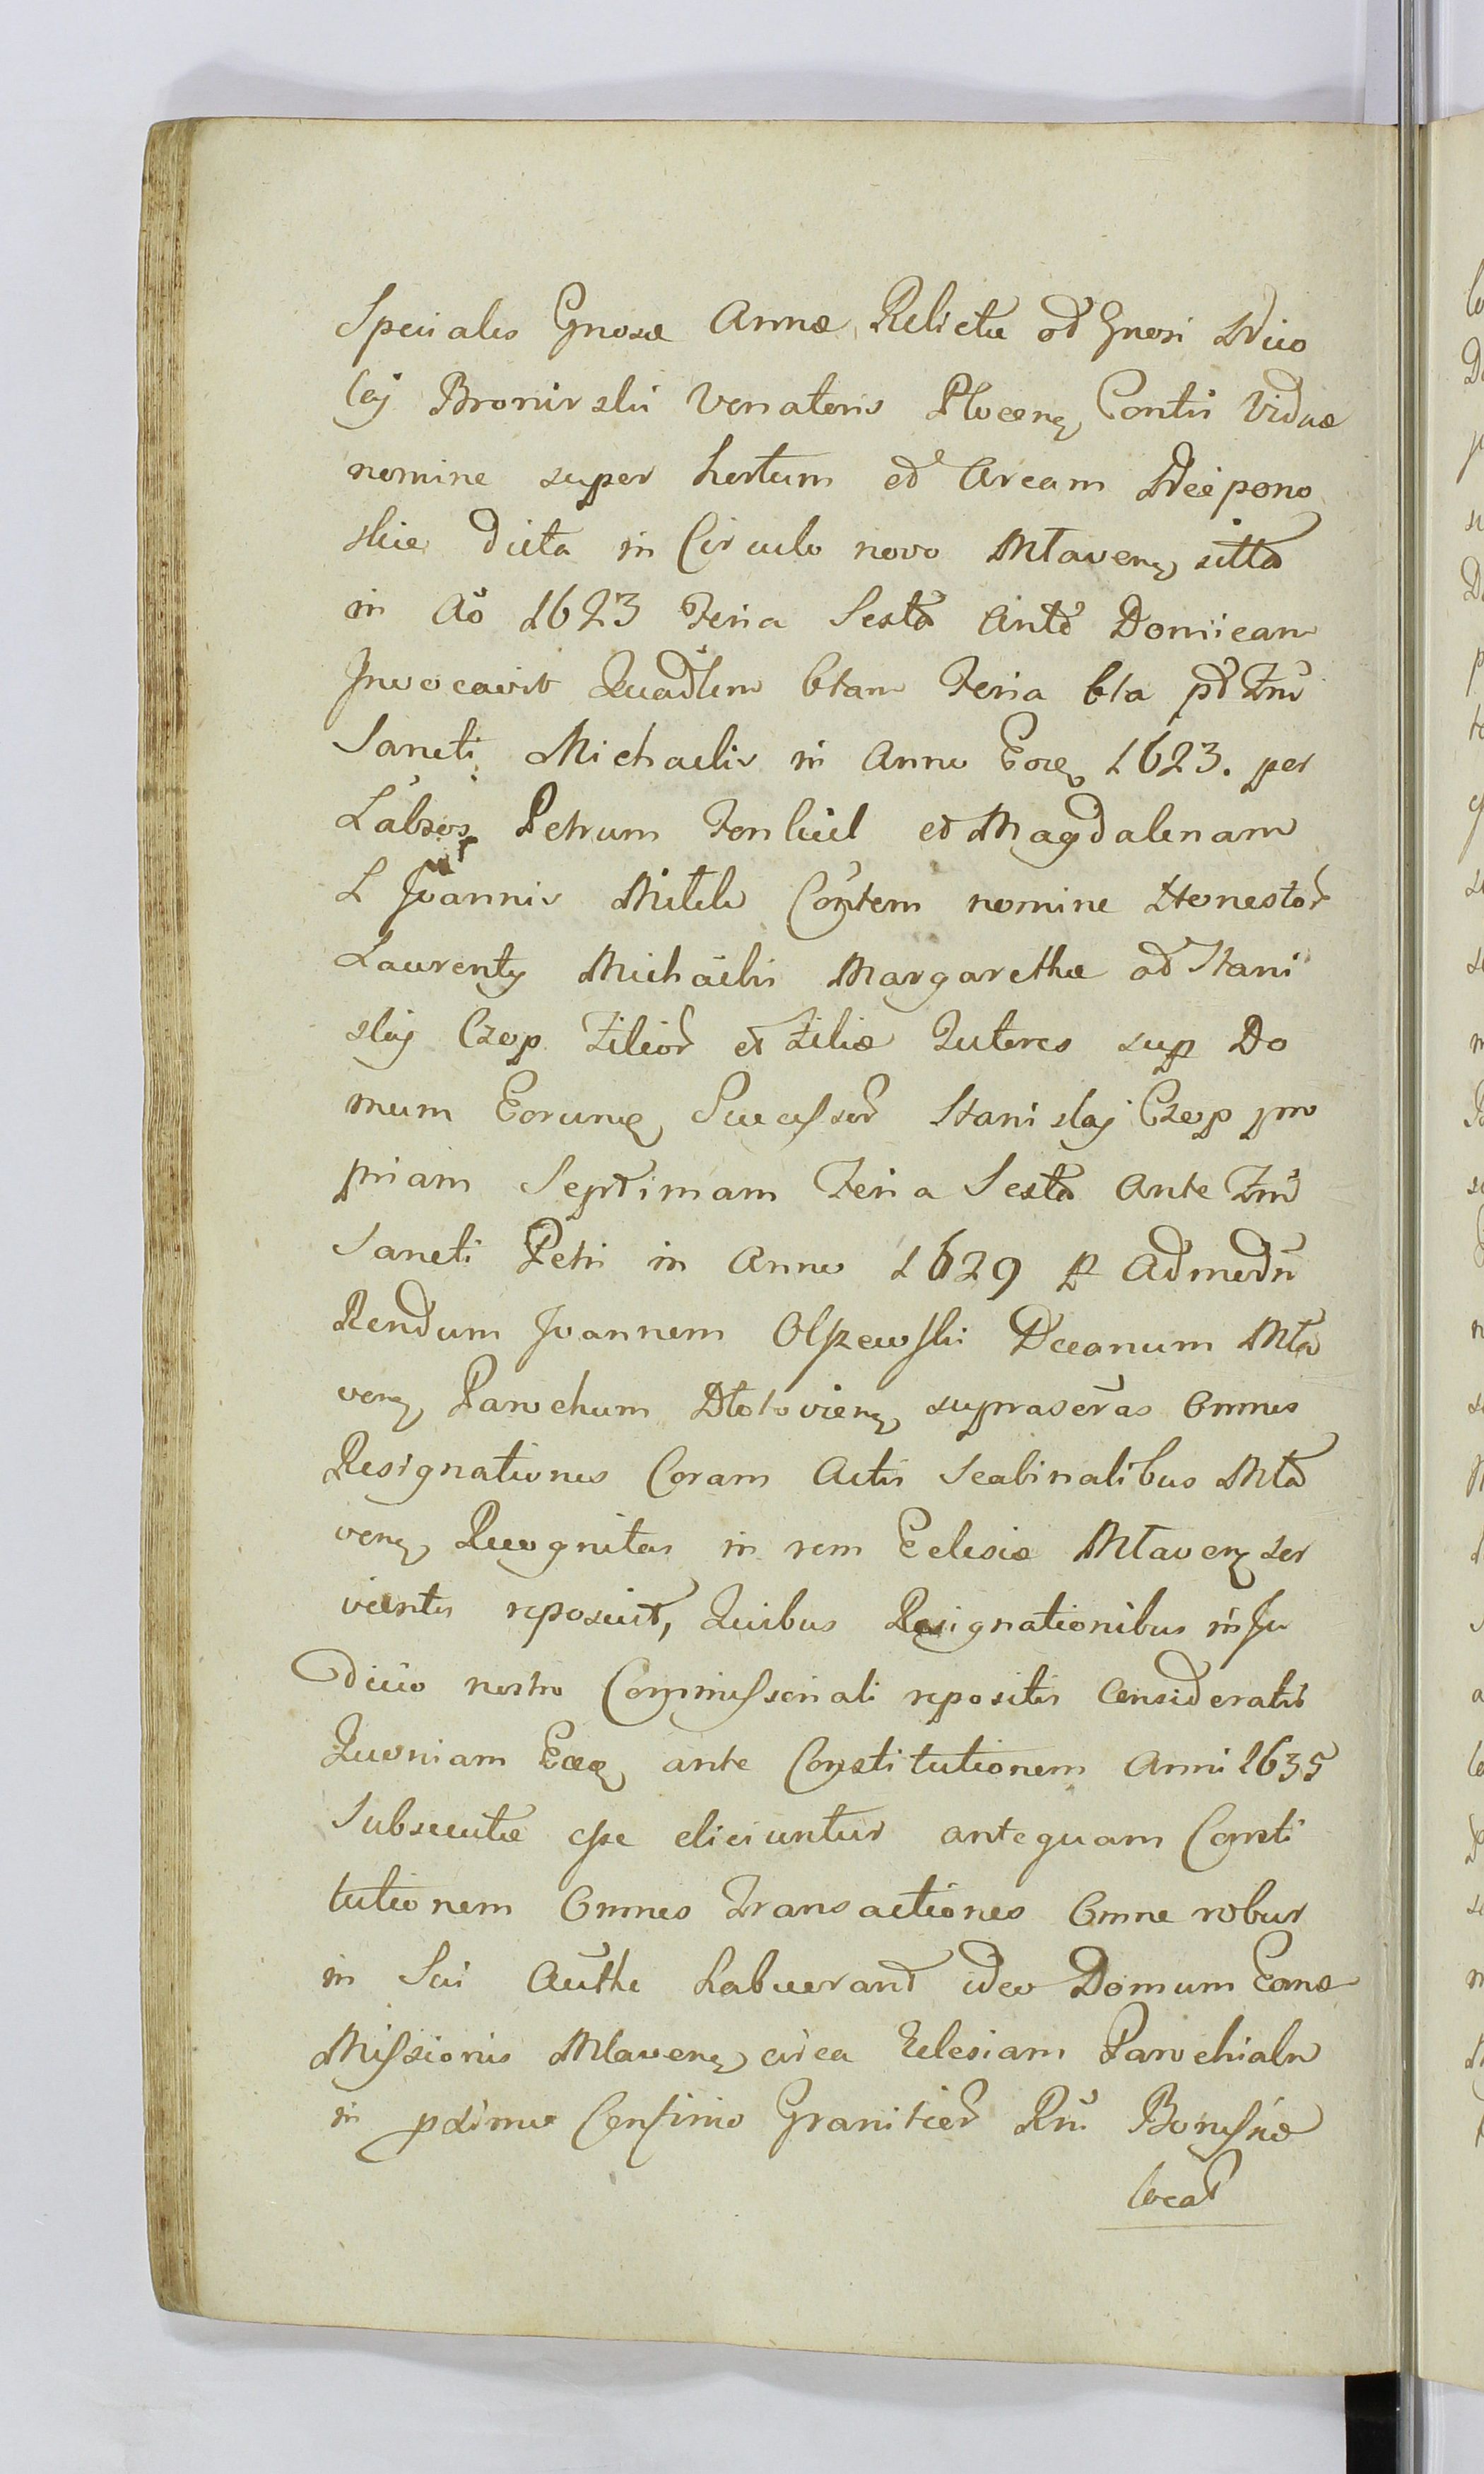 Specialis Gnosæ Annæ Relictæ od Gnosi Nico
laj Bronirski Venatoris Plocenꝫ Contis Viduæ
nomine super hortum ed Aream
skie dicta in Circulo novo Mlavenꝫ sitta
in Aõ 1623 Feria Sexta Ante Domicam
Invocavit Quadlem 6tam Feria 6ta pt Fm
Sancti Michaelis in Anno Eoꝗ 1623. per
Labros Petrum Fenkiel et Magdalenam
L Joannis Mitek Contem nomine Honestor
Laurentÿ Michaelis Margarethæ ad Stani
slaj Czop Filior et Filiæ Tutores sup Do
mum Eorumꝗ Sucessor Stanislaj Czop pro
priam Septimam Feria Sexta Ante Fm
Sancti Petri in Anno 1629 p Admodu
Rendum Joannem Olszewski Decanum Mla
venꝫ Parochum Dlotovienꝫ suprascras Omnes
Resignationes Coram Actis Scabinalibus Mla
venꝫ Recognitas in rem Eclesiæ Mlavenꝫ ser
vientes reposuit, Quibus Resignationibus in Ju
dicio nostro Commissoriali repositis Consideratis
Quoniam Eæꝗ ante Constitutionem Anni 1635
Subsecutæ esse eliciuntur antequam Consti
tutionem Omnes Transactiones Omne robur
in Sui Authe habuerant ideo Domum Eamꝗ
Missionis Mlavenꝫ circa Eclesiam Parochialn
in pximo Confinio Granicier Rni Borussiæ
locat